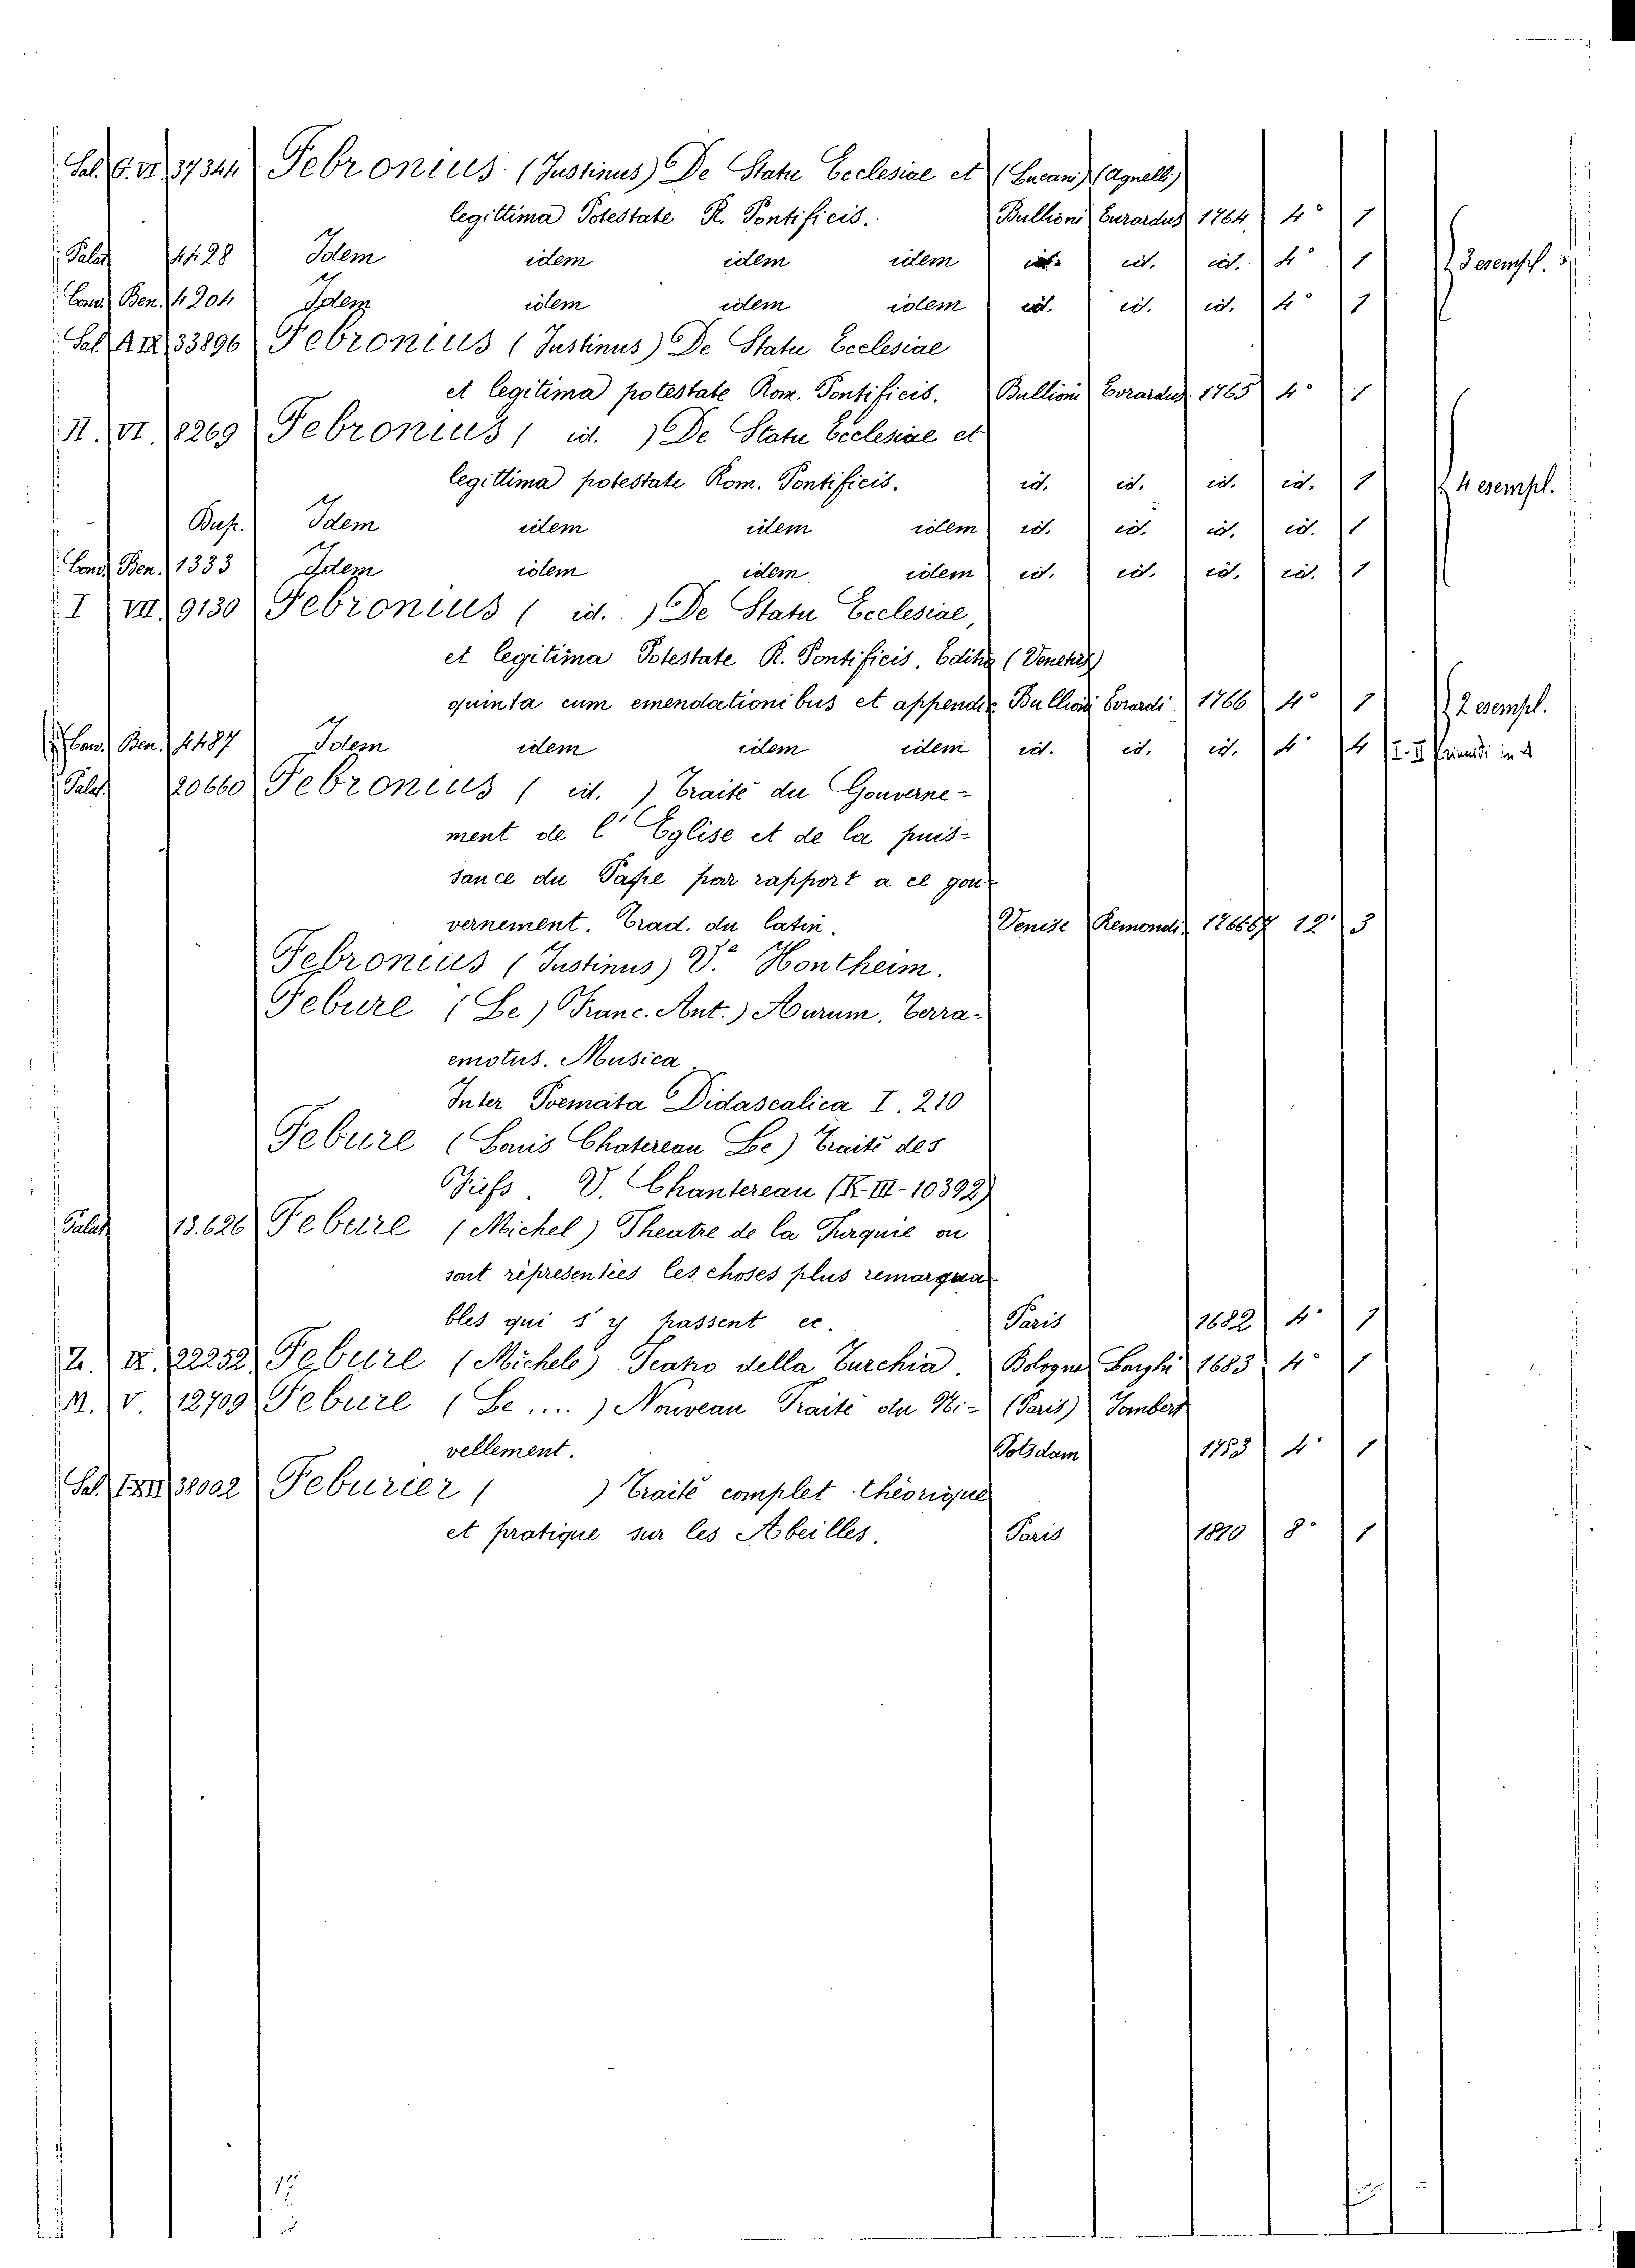 Sal. G. VI 37344 Febronius (Justinus) De Statu Ecclesiae et (Lucani) (Agnelli)
legittima Potestate R. Pontificis. Bullioni Eurardus 1764 4° 1
Palat 4428 Idem idem idem idem id. id. id. 4° 1 3 esempl.
Conv. Ben. 4204 Idem idem idem idem id. id. id. 4° 1
Sal. A IX 33896 Febronius (Justinus) De Statu Ecclesiae
et legitima potestate Rom. Pontificis. Bullioni Evrardus 1765 4° 1
II. VI. 8269 Febronius ( id. ) De Statu Ecclesiae et
legittima potestate Rom. Pontificis. id. id. id. id. 1 4 esempl.
Busp. Idem idem idem idem id. id. id. id. 1
Conv. Ben. 1333 Idem idem idem idem id. id. id. id. 1
I VII. 9130 Febronius ( id. ) De Statu Ecclesiae,
et legitima Potestate R. Pontificis. Editio (Venetiis)
quinta cum emendationibus et appendix Bullioni Evrardi 1766 4° 1 2 esempl.
Conv. Ben. 4487 Idem idem idem idem id. id. id. 4° 4
Palat. 20660 Febronius ( id. ) Traité du Gouverne-
ment de l' Eglise et de la puis-
sance du Pape par rapport a ce gou-
vernement. Trad. du latin. Venise Remondi 176667 12° 3
Febronius (Justinus) V.e Hontheim.
Febure (Le) Franc. Ant.) Aurum. Terra-
emotus. Musica
Inter Poemata Didascalica I. 210
Febure (Louis Chatereau Le) Traité des
Fiefs. V. Chantereau (K-III-10392)
Palat 13.626 Febure (Michel) Theatre de la Turquie ou
sont répresentées les choses plus remarqua-
bles qui s' y passent ec. Paris 1682 4° 1
Z. IX. 22252 Febure (Michele) Teatro della Turchia. Bologna Longhi 1683 4° 1
M. V. 12709 Febure (Le ....) Nouveau Traité du Ni- (Paris) Jombert
vellement. Potsdam 1753 4° 1
Sal. I. XII 38002 Feburier ( ) Traité complet théorique
et pratique sur les Abeilles. Paris 1810 8° 1